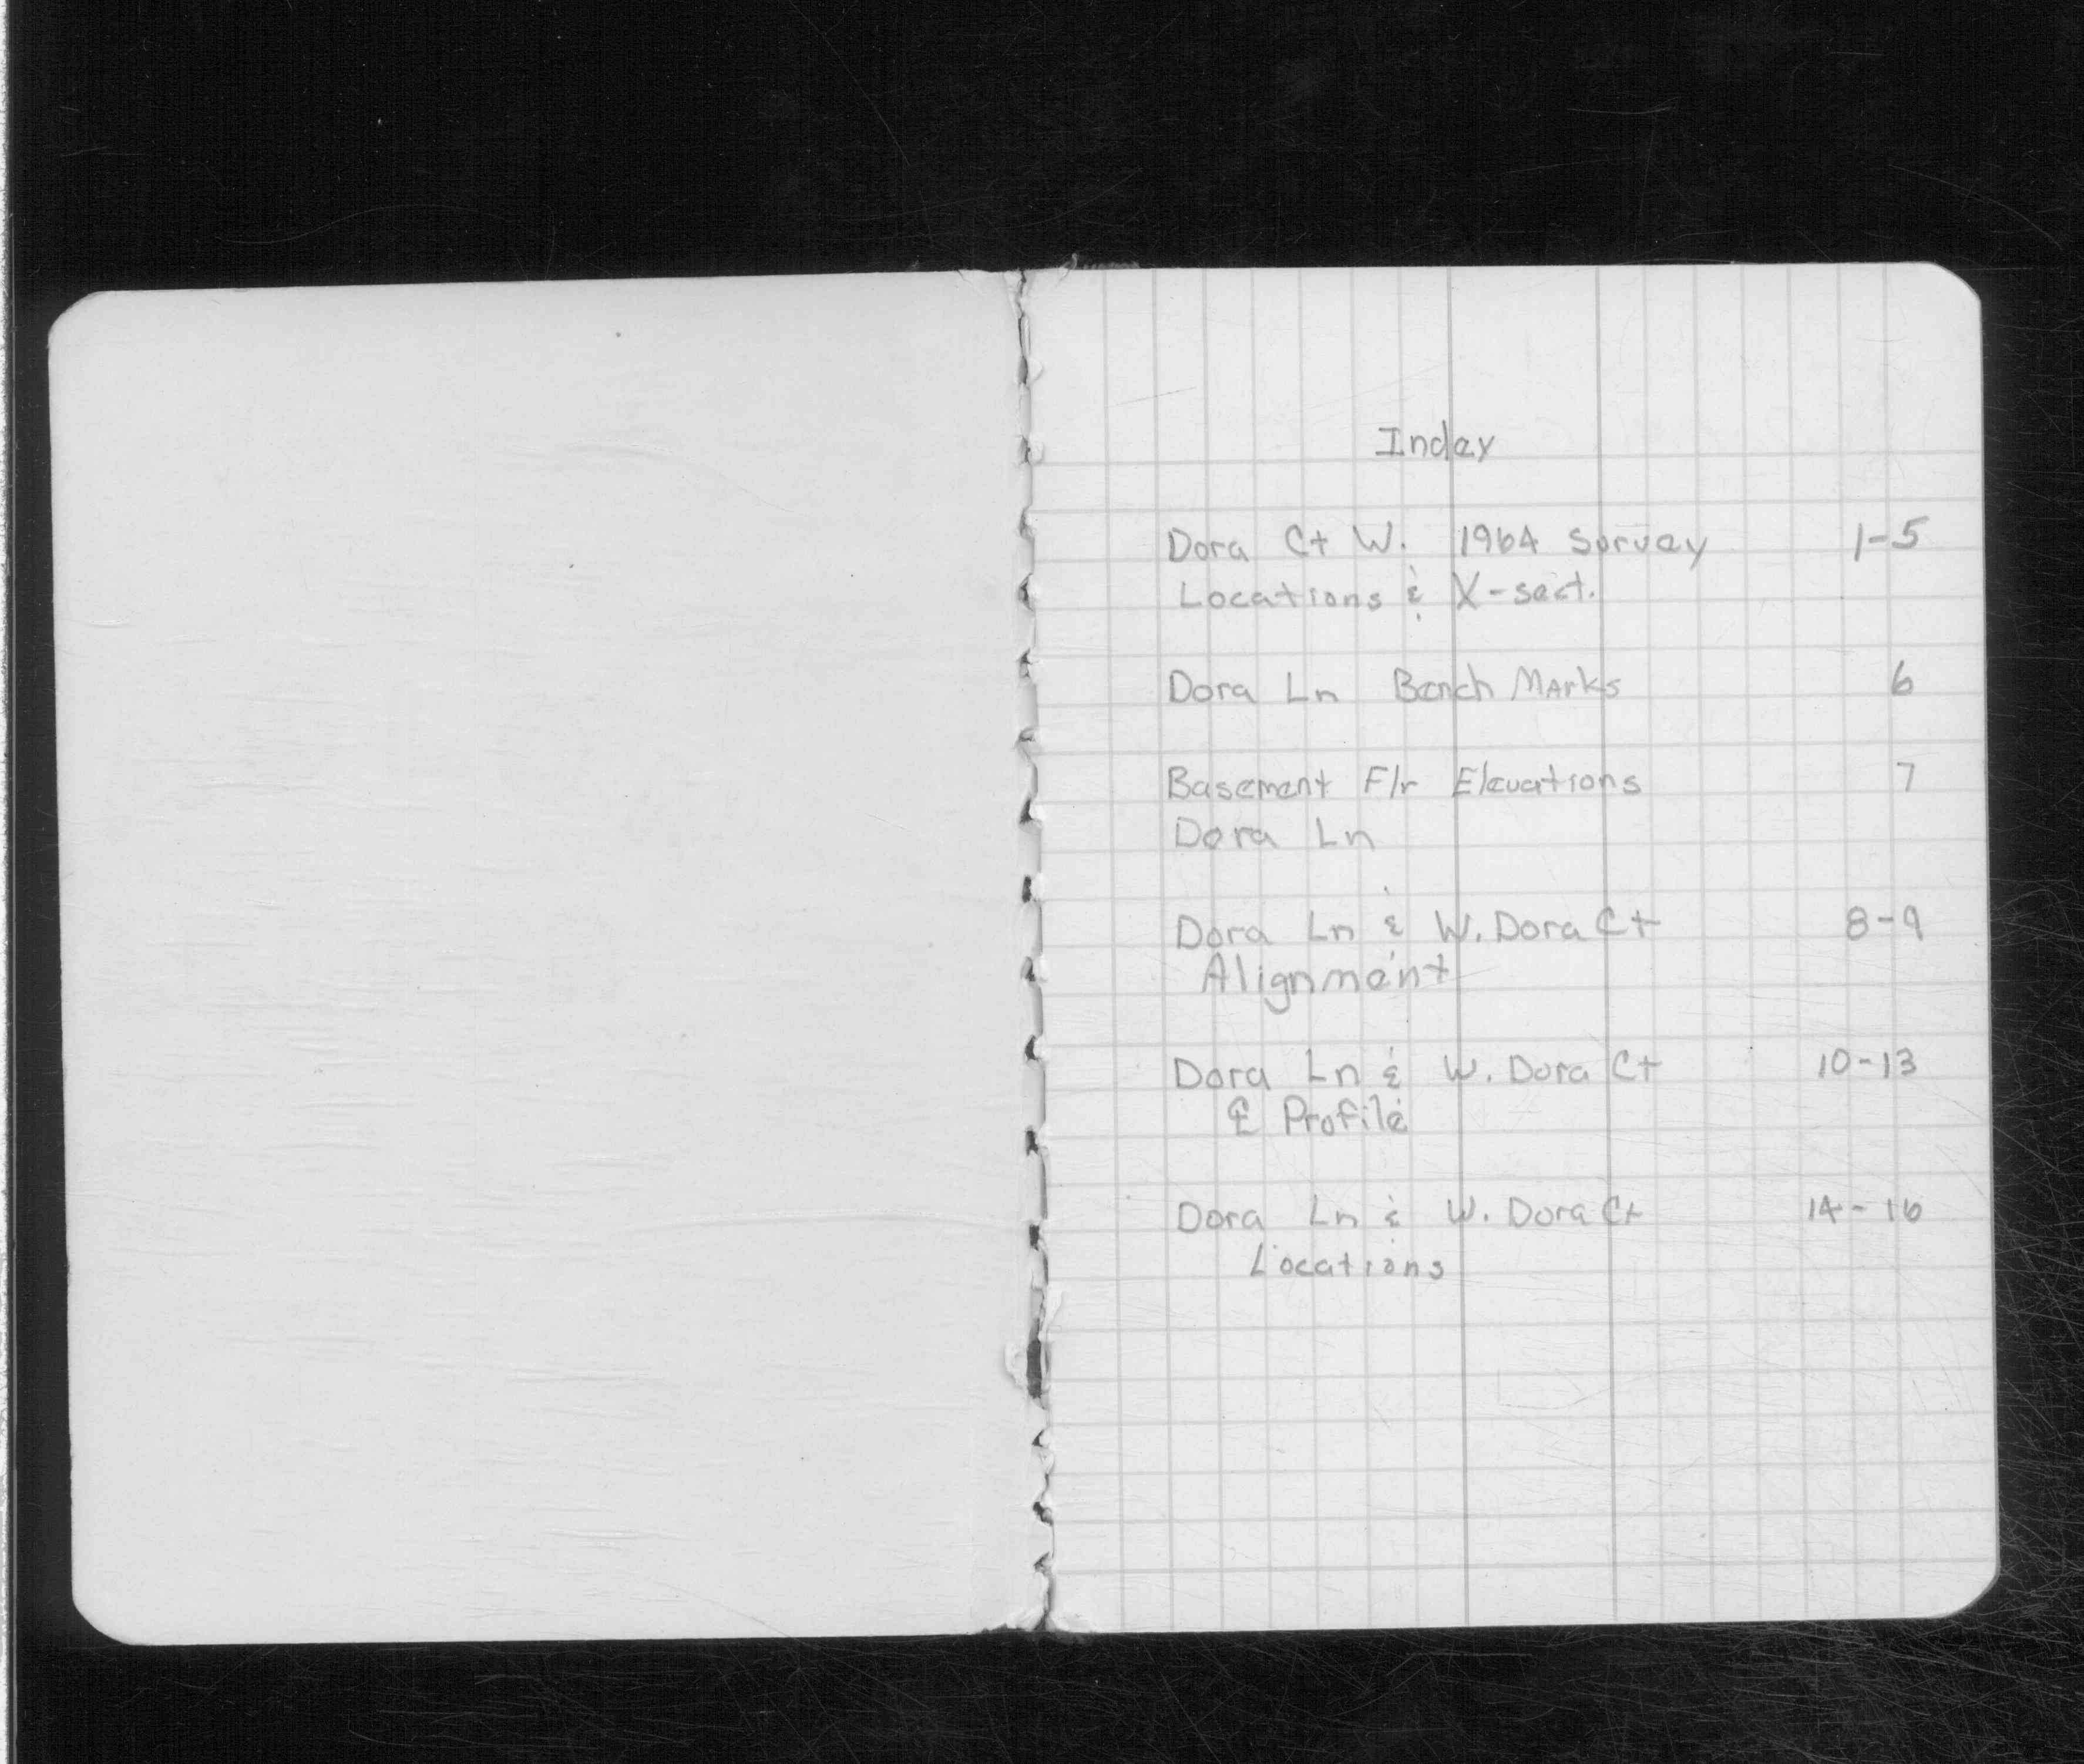 Index
Dora Ct W. 1964 Survey 1-5
Locations & X-sect.
Dora Ln Bench Marks 6
Basement Flr Elevations 7
Dora Ln
Dora Ln & W. Dora Ct 8-9
Alignment
Dora Ln & W. Dora Ct 10-13
℄ Profile
Dora Ln & W. Dora Ct 14-16
Locations